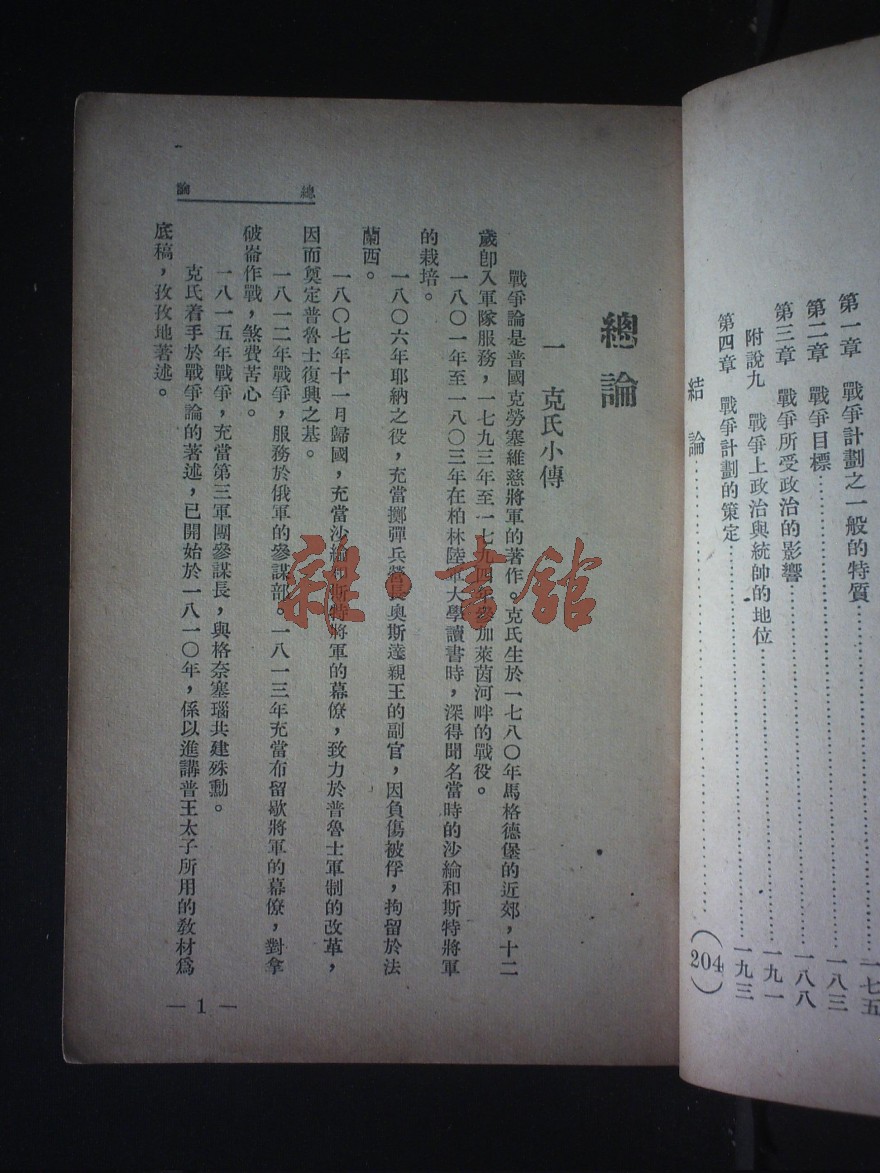 第一章　戰爭計劃之一般的特質…………一七五
第二章　戰爭目標…………一八三
第三章　戰爭所受政治的影響…………一八八
附說九　戰爭上政治與統帥的地位…………一九一
第四章　戰爭計劃的策定…………一九三
結論…………(204)
總論
一　克氏小傳
戰爭論是普國克勞塞維慈將軍的著作。克氏生於一七八〇年馬格德堡的近郊，十二
歲卽入軍隊服務，一七九三年至一七九四年參加萊茵河畔的戰役。
一八〇一年至一八〇三年在柏林陸軍大學讀書時，深得聞名當時的沙綸和斯特將軍
的栽培。
一八〇六年耶納之役，充當擲彈兵營長奧斯達親王的副官，因負傷被俘，拘留於法
蘭西。
一八〇七年十一月歸國，充當沙綸和斯特將軍的幕僚，致力於普魯士軍制的改革，
因而奠定普魯士復興之基。
一八一二年戰爭，服務於俄軍的參謀部。一八一三年充當布留歇將軍的幕僚，對拿
破崙作戰，煞費苦心。
一八一五年戰爭，充當第三軍團參謀長，與格奈塞瑙共建殊勳。
克氏着手於戰爭論的著述，已開始於一八一〇年，係以進講普王太子所用的敎材爲
底稿，孜孜地著述。
總論
— 1 —
雜·書館